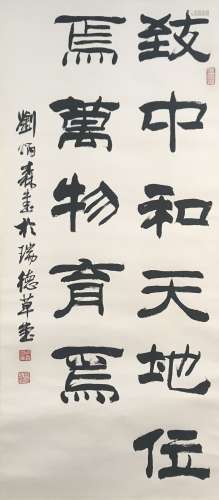 致中和天地位
焉萬物育焉
劉炳森書於瑞德草堂